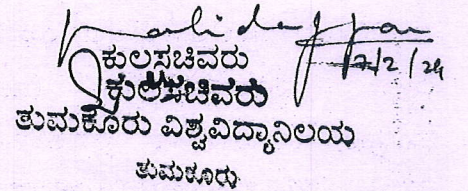 17/2/24
ಕುಲಸಚಿವರು
ಕುಲಸಚಿವರು
ತುಮಕೂರು ವಿಶ್ವವಿದ್ಯಾನಿಲಯ
ತುಮಕೂರು